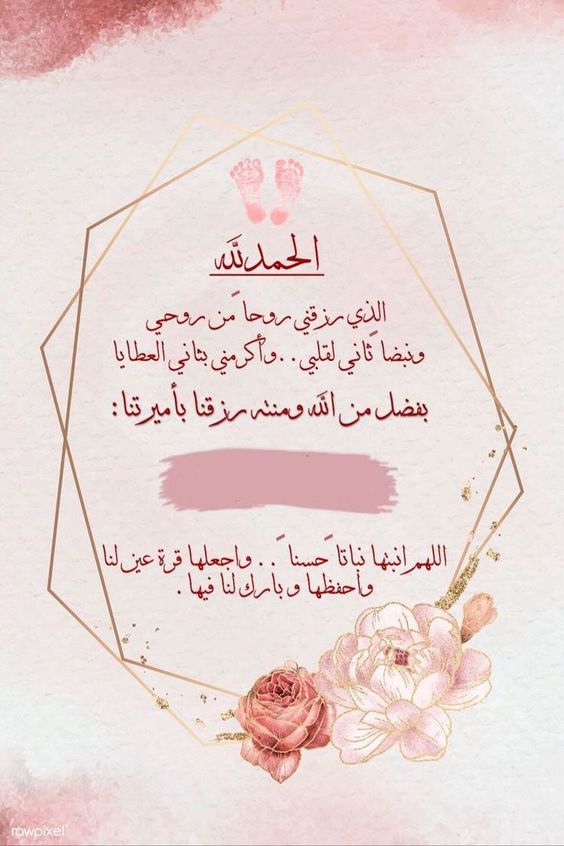 الحمدلله
الذي رزقني روحا ًمن روحي
ونبضا ًثاني لقلبي..وأكرمني بثاني العطايا
بفضل من الله ومنته رزقنا بأميرتنا:
اللهم انبتها نباتا ًحسنا ً.. واجعلها قرة عين لنا
واحفظها وبارك لنا فيها.
rawpixel